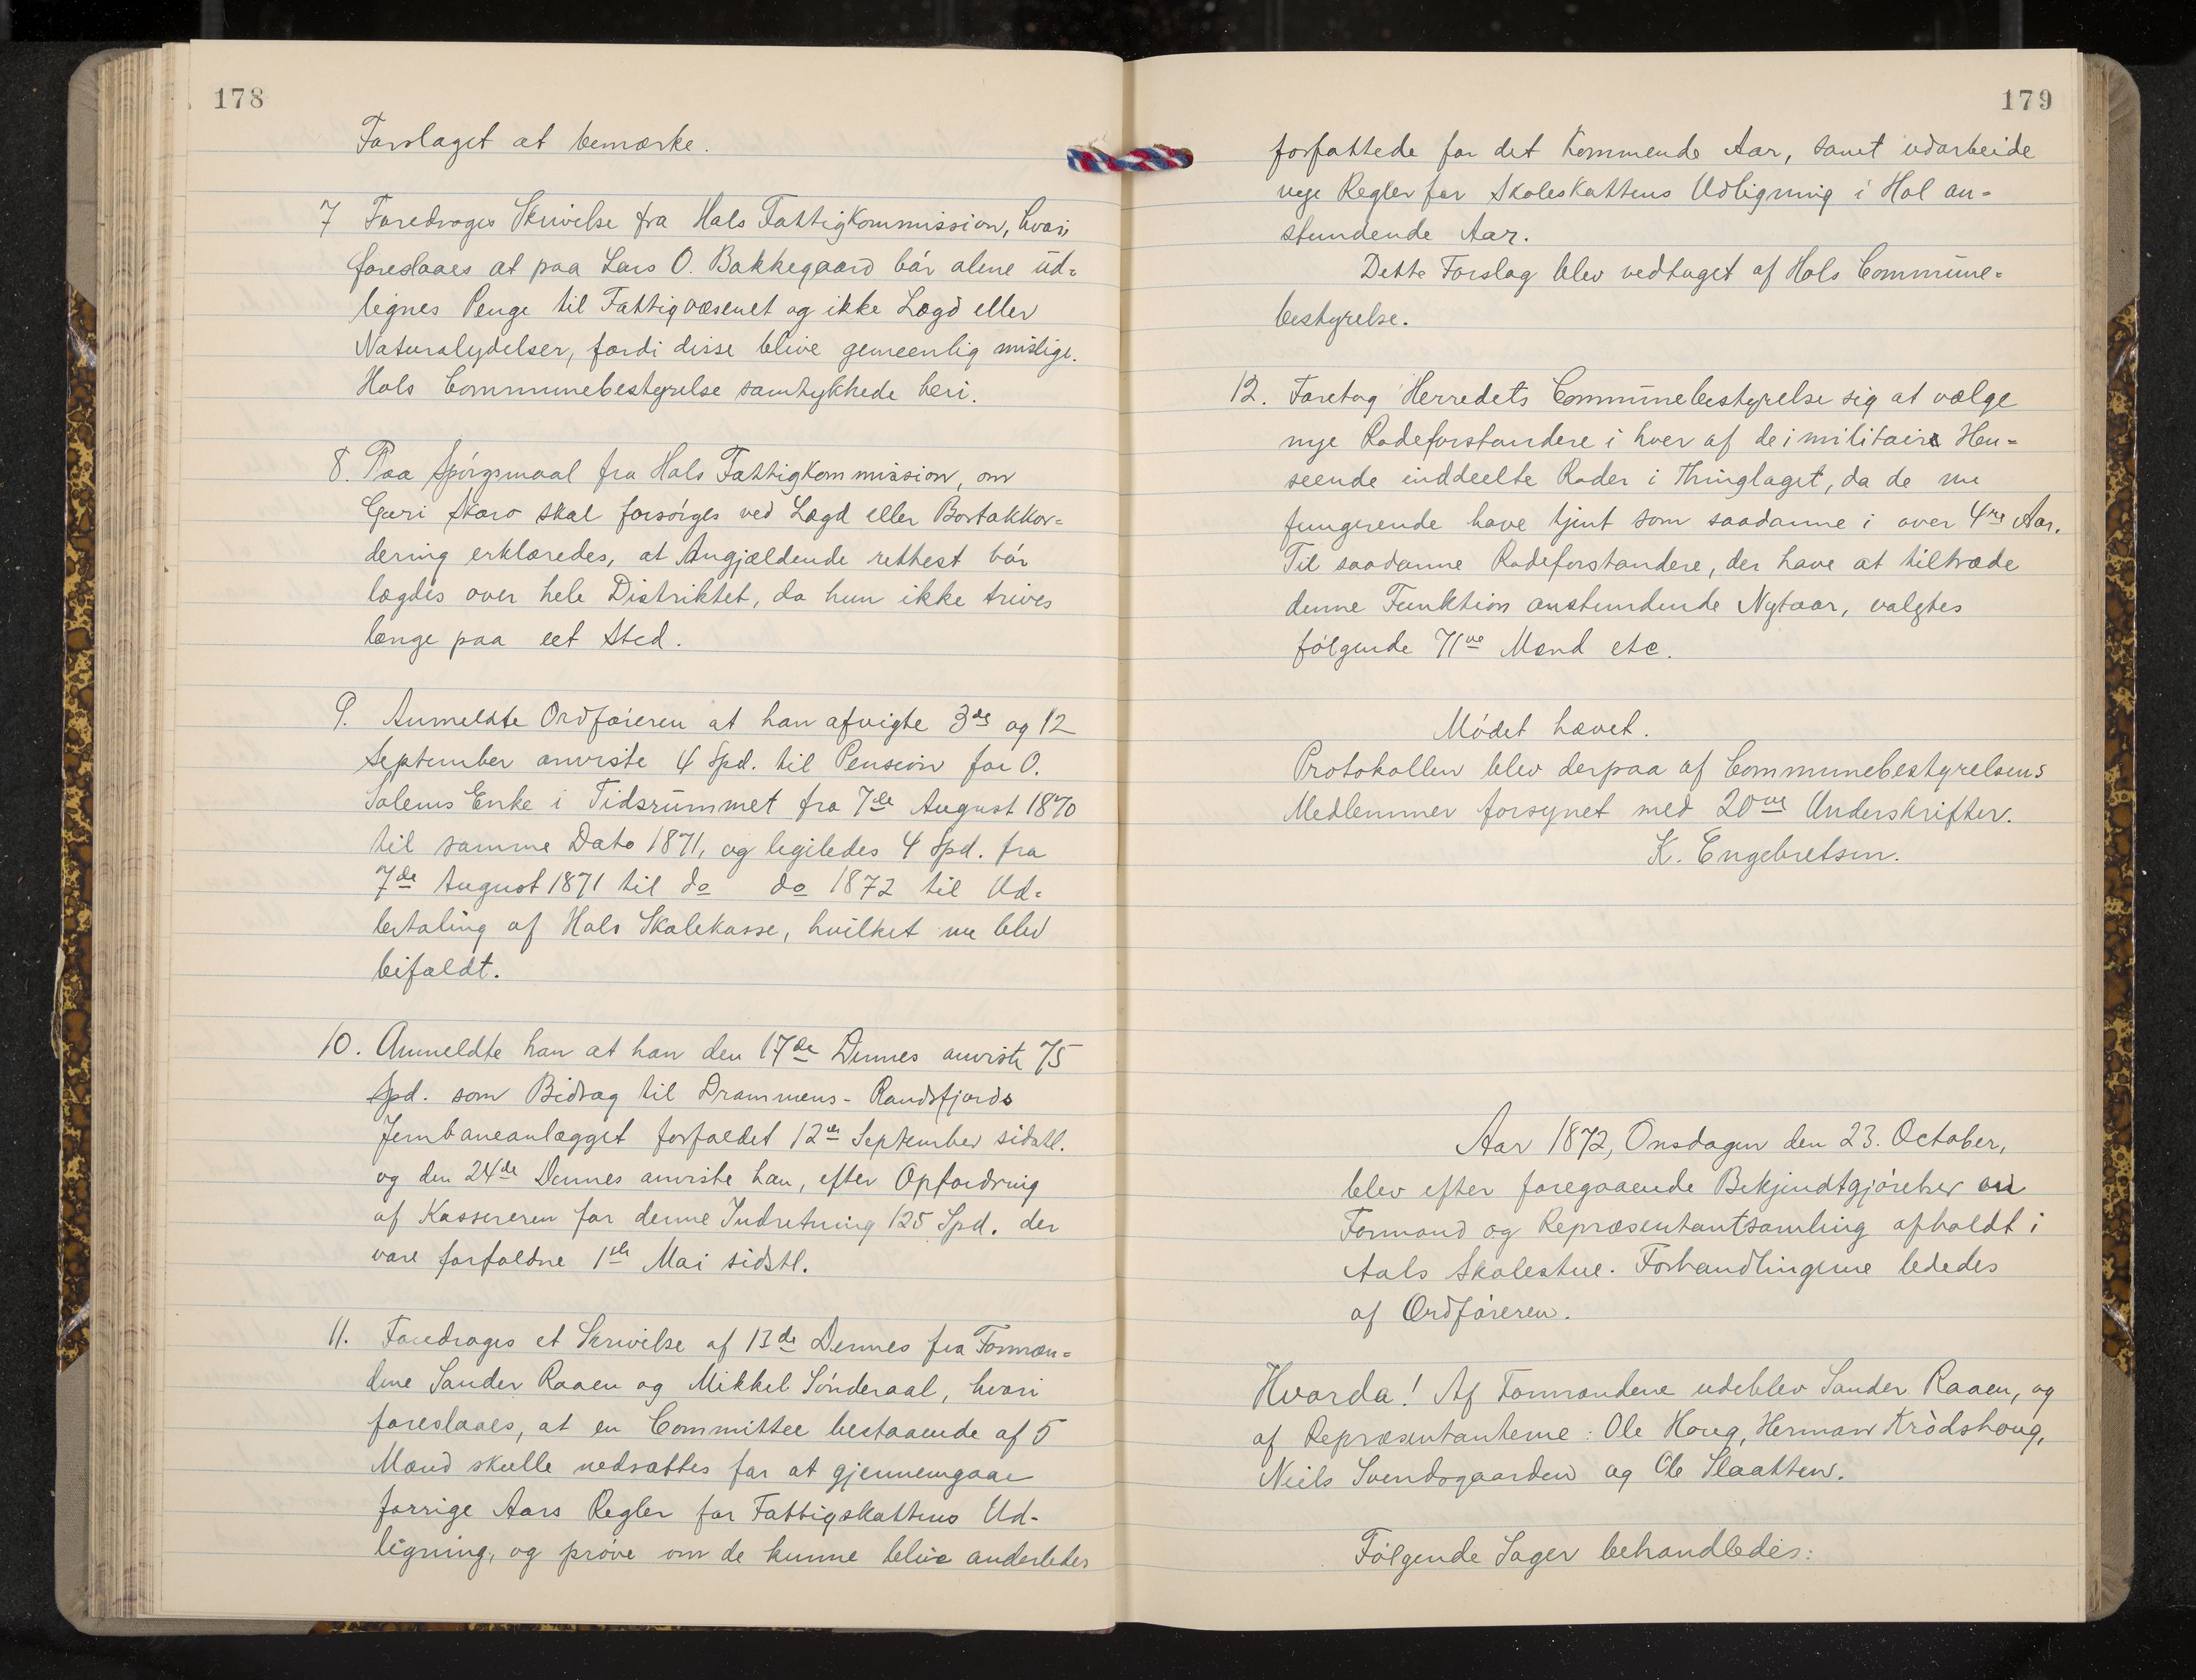 178
Forslaget at bemærke.
7 Foredroges Skrivelse fra Hols Fattigkommission, hvori
foreslaaes at paa Lars O. Bakkegaard bør alene ud-
lignes Penge til Fattigvæsenet og ikke Lægd eller
Naturalydelser, fordi disse blive gemeenlig mislige.
Hols Communebestyrelse samtykkede heri.
8. Paa Spørgsmaal fra Hols Fattigkommission, om
Guri Skaro skal forsørges ved Lægd eller Bortakkor-
dering erklæredes, at Angjældende rettest bør
lægdes over hele Distriktet, da hun ikke trives
længe paa eet Sted.
9. Anmeldte Ordføreren at han afvigte 3de og 12
September anviste 4 Spd. til Pension for O.
Solems Enke i Tidsrummet fra 7de August 1870
til samme Dato 1871, og ligeledes 4 Spd. fra
7de August 1871 til do do 1872 til Ud-
betaling af Hols Skolekasse, hvilket nu blev
bifaldt.
10. Anmeldte han at han den 17de Dennes anviste 75
Spd. som Bidrag til Drammens- Randsfjords
Jernbaneanlægget forfaldet 12te September sidstl.
og den 24de Dennes anviste han, efter Opfordring
af Kassereren for denne Indretning 125 Spd. der
vare forfaldne 1ste Mai sidstl.
11. Foredroges et Skrivelse af 13de Dennes fra Formæn-
dene Sander Raaen og Mikkel Sønderaal, hvori
foreslaaes, at en Committee bestaaende af 5
Mænd skulle nedsættes for at gjennemgaae
forrige Aars Regler for Fattigskattens Ud-
ligning, og prøve om de kunne blive anderledes
179
forfattede for det kommende Aar, samt udarbeide
nye Regler for Skoleskattens Udligning i Hol an-
stundende Aar.
Dette Forslag blev vedtaget af Hols Commune-
bestyrelse.
12. Foretog Herredets Communebestyrelse sig at vælge
nye Rodeforstandere i hver af de i militaire Hen-
seende inddeelte Roder i Thinglaget, da de nu
fungerende have tjent som saadanne i over 4re Aar.
Til saadanne Rodeforstandere, der have at tiltræde
denne Funktion anstundende Nytaar, valgtes
følgende 71ve Mænd etc.
Mødet hævet.
Protokollen blev derpaa af Communebestyrelsens
Medlemmer forsynet med 20ve Underskrifter.
K. Engebretsen.
Aar 1872, Onsdagen den 23. October,
blev efter foregaaende Bekjendtgjørelser en
Formand og Repræsentantsamling afholdt i
Aals Skolestue. Forhandlingerne lededes
af Ordføreren.
Hvorda! Af Formændene udeblev Sander Raaen, og
af Repræsentanterne: Ole Houg, Herman Krødshoug,
Niels Svendsgaarden og Ole Slaatten.
Følgende Sager behandledes: